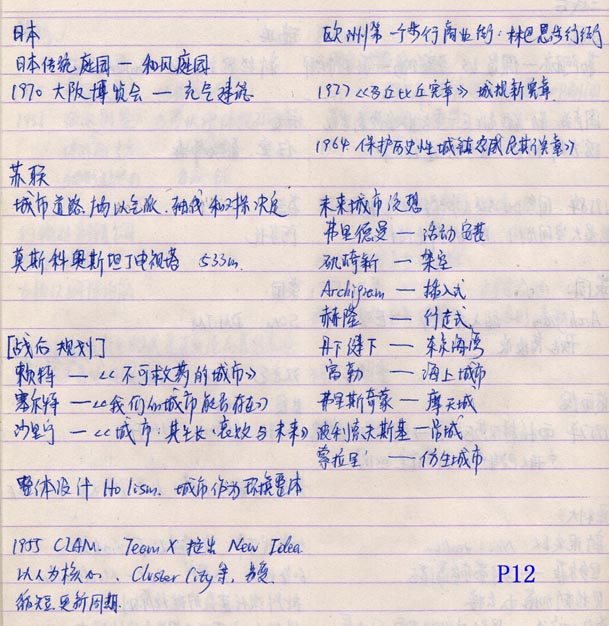 日本
日本传统庭园 — 和风庭园
1970 大阪博览会 — 充气建筑
苏联
城市道路.广场以气派.轴线和对称决定
莫斯科奥斯坦丁电视塔 533m
[战后规划]
赖特 — 《不可救药的城市》
塞尔特 — 《我们的城市能否存在》
沙里宁 — 《城市.其生长.衰败与未来》
整体设计 Holism. 城市作为环境整体
1955 CIAM. Team X 提出 New Idea.
以人为核心、Cluster City 等,
缩短更新周期.
欧洲第一个步行商业街:林巴恩步行街
1977《马丘比丘宪章》城规新宪章.
1964.保护历史性城镇
未来城市设想
弗里德曼 — 活动
矶崎新 — 架空
Archigram — 插入式
赫隆 — 行走式
丹下健下 — 东京海湾
富勒 — 海上城市
弗里斯奇蒙 — 摩天城
波利索夫斯基 — 吊城
索拉里 — 仿生城市
P12